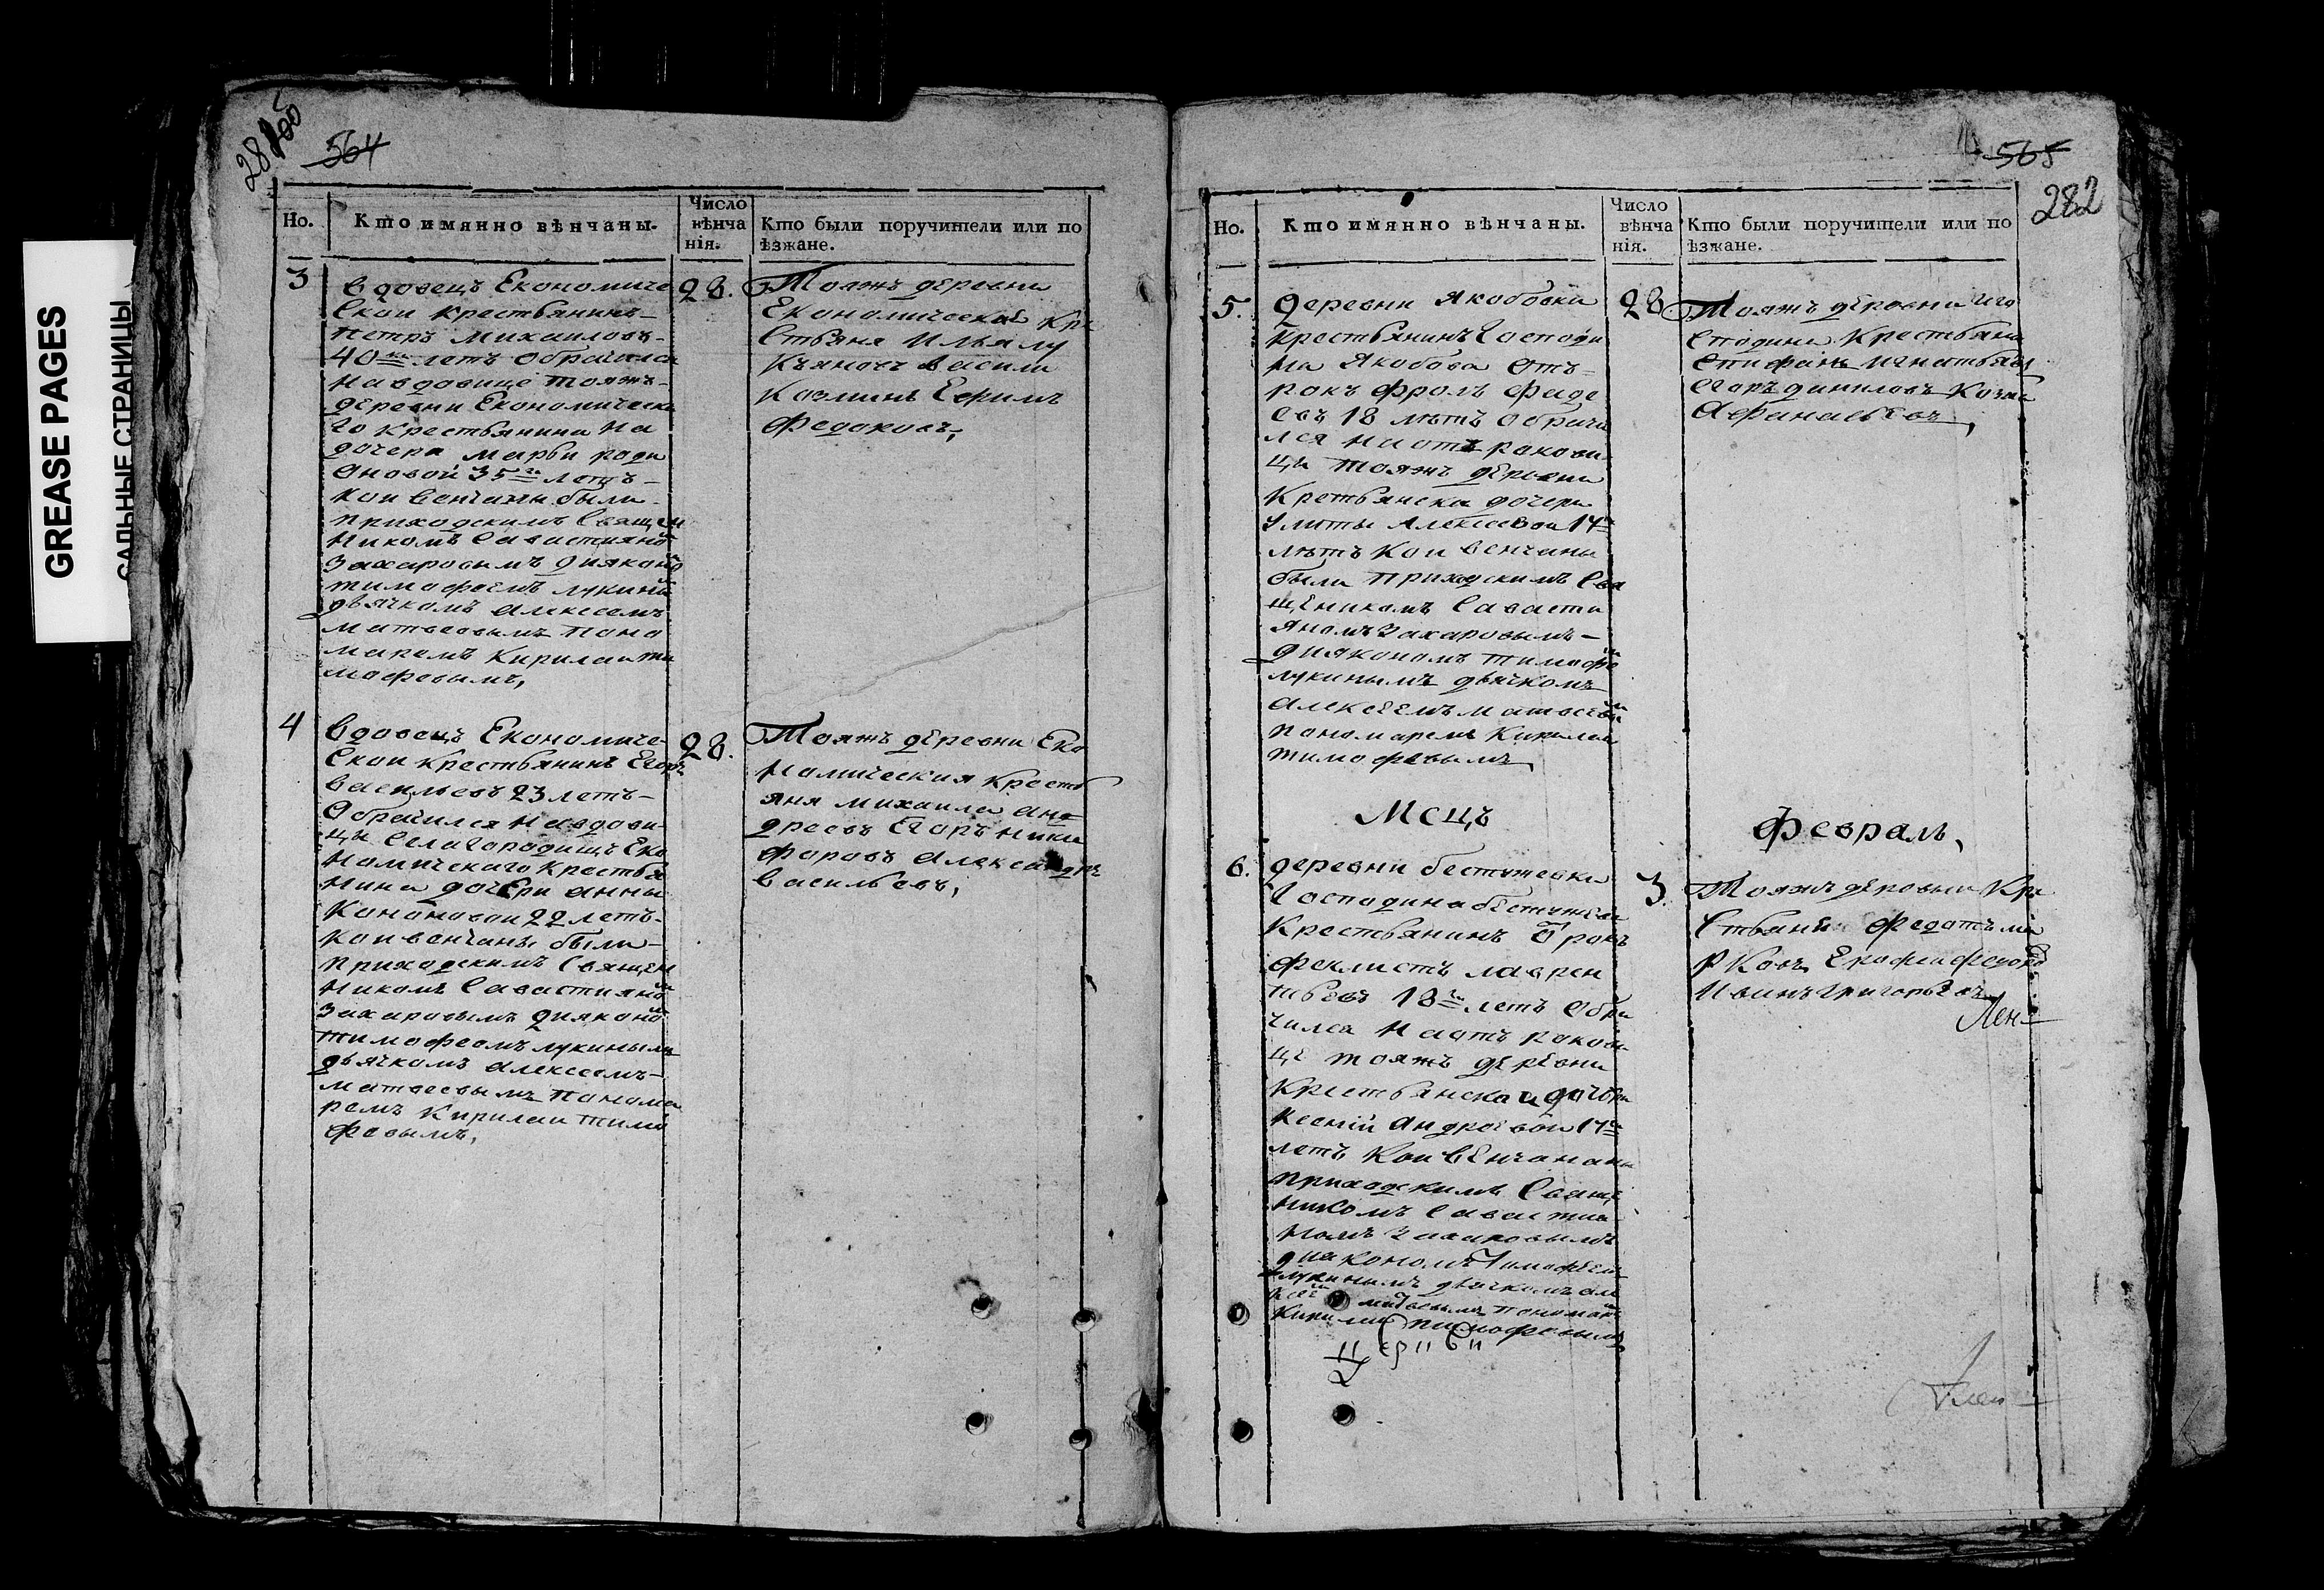 GREASE PAGES
САЛЬНЫЕ СТРАНИЦЫ
564
Но.
Кто имянно вѣнчаны.
Число вѣнчанія.
Кто были поручители или поѣзжане.
3
вдовецъ Економиче
скои крестьянинъ
Петръ Михаиловъ
40 летъ обрачился
на вдовице тояжъ
деревни Економическа
го крестьянина на
дочере Марьи Роди
оновой 35 летъ
кои венчаны были
приходскимъ Священ
никомъ Савастияно
Захаровымъ Дияконо
Тимофеемъ Лукины
дьячкомъ Алексеемъ
Матвеевымъ поно
маремъ Кирилаи Ти
мофевымъ,
28.
Тояжъ деревни
Економическия Кре
стьяне Илья Лу
кьяновъ Васили
Козминъ Ефимъ
Федоровъ,
4
вдовецъ Економиче
скои крестьянинъ Егоръ
Васильевъ 23 летъ
Обрачился на вдови
цы села Городищъ Еко
номическаго крестья
нина дочери Анны
Кононовои 22 летъ
кои венчаны были
приходскимъ Священ
никомъ Савастияно
Захаровымъ Дияконо
Тимофеомъ Лукинымъ
дьячкомъ Алексеемъ
Матвеевымъ понома
ремъ Кирилаи Тимо
февымъ,
28.
Тояжъ деревни Еко
номическия кресть
яня Михаила Анд
дреевъ Егоръ Ники
форовъ Александръ
Васильевъ,
565
282
Но.
Кто имянно вѣнчаны.
Число вѣнчанія.
Кто были поручители или поѣзжане.
5.
деревни Якобовки
крестьянинъ Господи
на Якобова отъ
рокъ Фролъ Фаде
евъ 18 лѣтъ обрачи
лся на отъ рокови
цы тояжъ деревни
кретьянска дочери
Улиты Алексевои 17
лѣтъ кои венчаны
были приходскимъ Свя
щеникомъ Савасти
яномъ Захаровымъ
диякономъ Тимофе
Лукинымъ дьячкомъ
Алексеемъ Матвеевы
пономаремъ Кирилаи
Тимофевымъ
28
Тояжъ деревни иго
сподина Крестьяна
Епифанъ Игнатьевъ
Егоръ Даниловъ Козма
Афанасьевъ,
Мсцъ
Февраль,
6.
деревни Бестужевки
Господина Бестужева
Крестьянинъ отрокъ
Феклистъ Лаврен
тьевъ 18 летъ обра
чился на отъ рокови
це тояжъ деревни
Крестьянскои дочери
Ксении Андреевои 17
летъ кои венчаны
приходскимъ Свяще
никомъ Савастия
номъ Захаровымъ
дьякономъ Тимофеем
Лукинымъ дьячкомъ Але
Матвевымъ пономаре
Кирилаи Тимофевымъ
3.
Тояжъ деревни Кре
стьяня Федотъ Ма
рковъ Ерофеи Федоро
Иванъ Григорьевъ